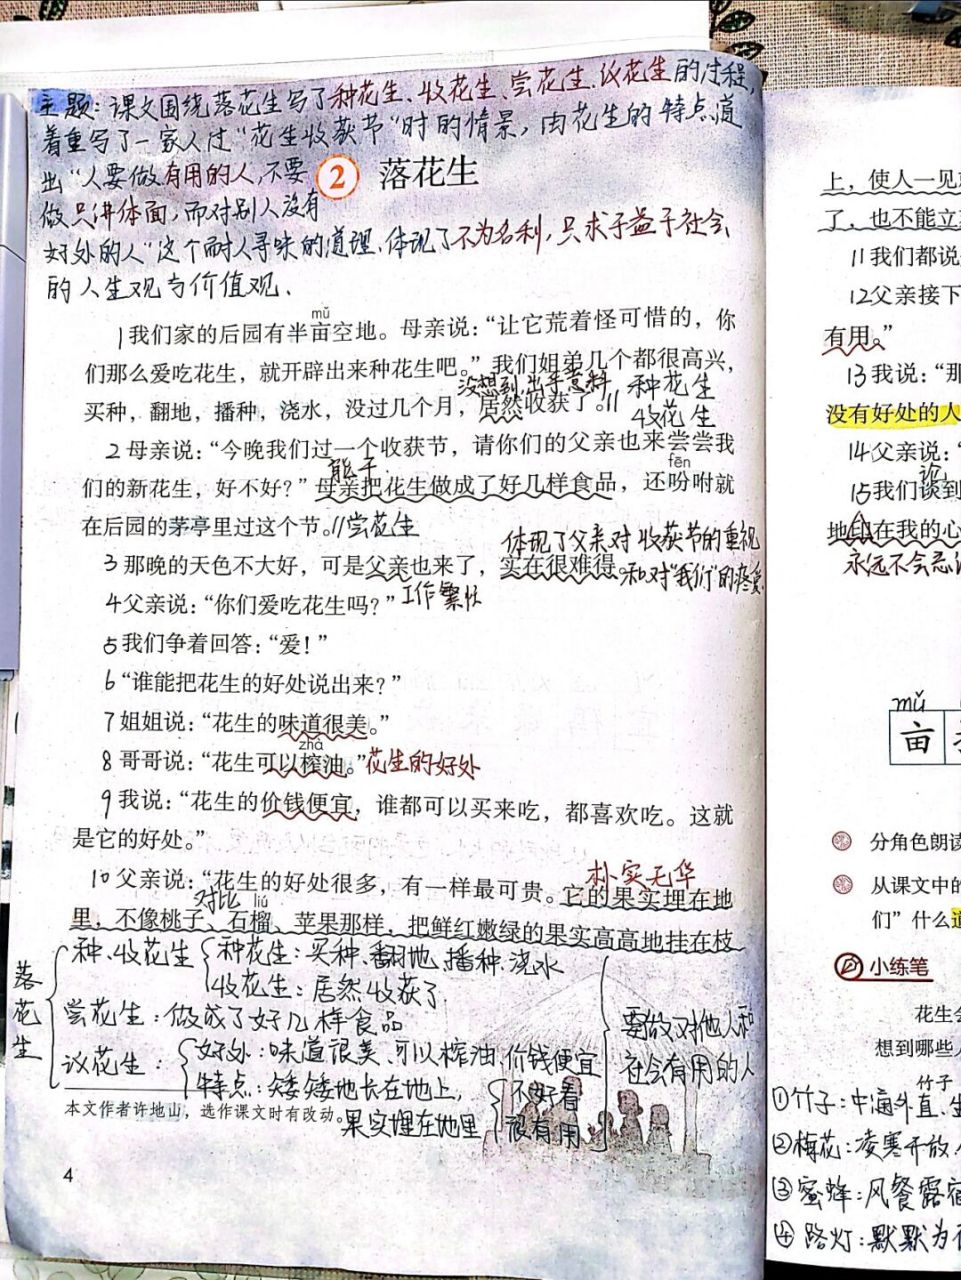 主题：课文围绕落花生写了种花生、收花生、尝花生、议花生的过程,
着重写了一家人过“花生收获节”时的情景，由花生的特点道
出“人要做有用的人,不要
做只讲体面，而对别人没有
好处的人”这个耐人寻味的道理.体现了不为名利，只求予益于社会
的人生观与价值观.
2 落花生
mǔ
1我们家的后园有半亩空地。母亲说：“让它荒着怪可惜的，你
们那么爱吃花生，就开辟出来种花生吧。”我们姐弟几个都很高兴，
没想到,出乎意料 种花生
买种，翻地，播种，浇水，没过几个月，居然收获了。//
收花生
2母亲说：“今晚我们过一个收获节，请你们的父亲也来尝尝我
能干 fēn
们的新花生，好不好？”母亲把花生做成了好几样食品，还吩咐就
在后园的茅亭里过这个节。//尝花生
体现了父亲对收获节的重视
3那晚的天色不大好，可是父亲也来了，实在很难得。和对“我们”的疼爱
4父亲说：“你们爱吃花生吗？”工作繁忙
5我们争着回答：“爱！”
6“谁能把花生的好处说出来？”
7姐姐说：“花生的味道很美。”
zhà
8哥哥说：“花生可以榨油。”花生的好处
9我说：“花生的价钱便宜，谁都可以买来吃，都喜欢吃。这就
是它的好处。”
朴实无华
10父亲说：“花生的好处很多，有一样最可贵。它的果实埋在地
对比 liú
里，不像桃子、石榴、苹果那样，把鲜红嫩绿的果实高高地挂在枝
落花生
种、收花生
种花生：买种、翻地、播种、浇水
收花生：居然收获了
尝花生：做成了好几样食品
议花生：
好处：味道很美、可以榨油、价钱便宜
特点：矮矮地长在地上,
果实埋在地里
不好看
很有用
要做对他人和
社会有用的人
本文作者许地山，选作课文时有改动。
4
上，使人一见
了，也不能立
11我们都说
12父亲接下
有用。”
13我说：“那
没有好处的人
14父亲说：“
论
15我们谈到
地印在我的心
永远不会忘
mǔ
亩
分角色朗读
从课文中的
们”什么道
小练笔
花生
想到哪些
竹子
①竹子：中通外直、
②梅花：凌寒开放
③蜜蜂：风餐露宿
④路灯：默默为